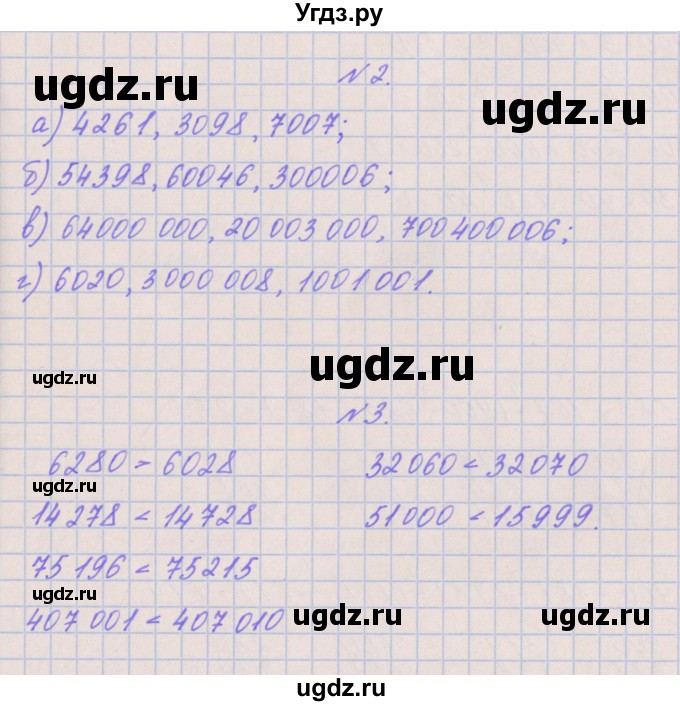 Угдз.ру
№2.
ugdz.ru ugdz.ru
а) 4261, 3098, 7007;
б) 54398, 60046, 300006;
в) 64000 000, 20 003 000, 700 400 006;
г) 6020, 3 000 008, 1001 001.
ugdz.ru ugdz.ru
№3.
6280 > 6028 32 060 < 32 070
ugdz.ru
14 278 < 14 728 51 000 < 15 999.
75 196 < 75 215
ugdz.ru
407 001 < 407 010 ugdz.ru ugdz.ru
ugdz.ru